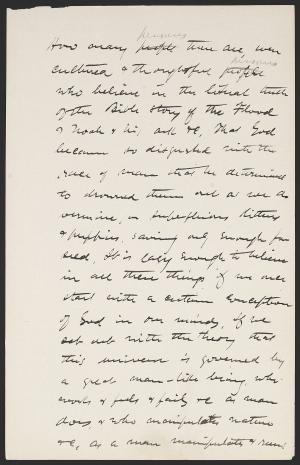 persons
How many people there are, even
persons
cultured & thoughtful people
who believe in the literal truth
of the Bible story of the Flood
& Noah & his ark &c, that God
became so disgusted with the
race of man that he determined
to drowned them out as we do
vermine, or superfluous kittens
& puppies, saving only enough for
seed. It is easy enough to believe
in all these things if we once
start with a certain conception
of God in our minds, if we
set out with the theory that
this universe is governed by
a great man-like being, who
works & feels & fails &c as man
does, & who manipulates nature
&c, as a man manipulates &